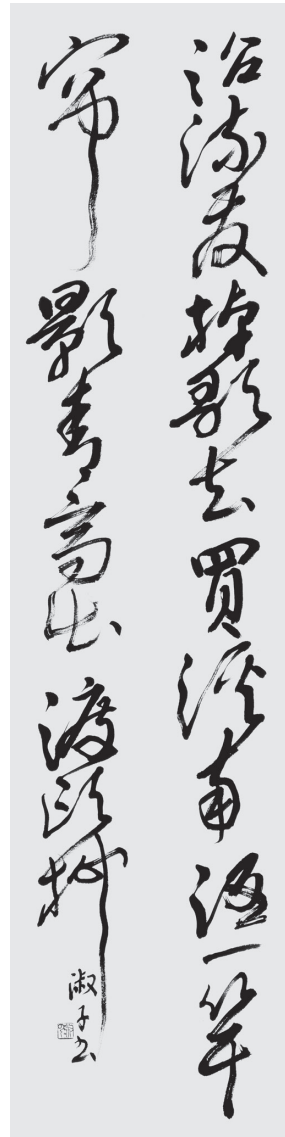 沿流發棹歌去買溪南酒一竿
帘影青高出渡頭柳
淑子書